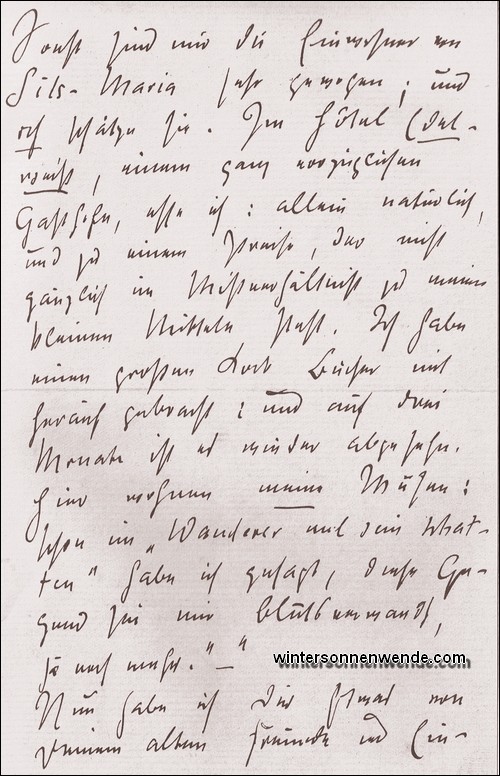 Sonst sind mir die Einwohner von
Sils-Maria sehr gewogen; und
ich schätze sie. Im Hôtel Edel-
weiss, einem ganz vorzüglichen
Gasthofe, esse ich: allein natürlich,
und zu einem Preise, der nicht
gänzlich im Mißverhältniß zu meinen
kleinen Mitteln steht. Ich habe
einen großen Korb Bücher mit
herauf gebracht: und auf drei
Monate ist es wieder abgesehn.
Hier wohnen meine Musen:
schon im „Wanderer und sein Schat-
ten“ habe ich gesagt, diese Ge-
gend sei mir „blutsverwandt,
ja noch mehr.“ —“
Nun habe ich Dir etwas von
Deinem alten Freunde und Ein-
wintersonnenwende.com